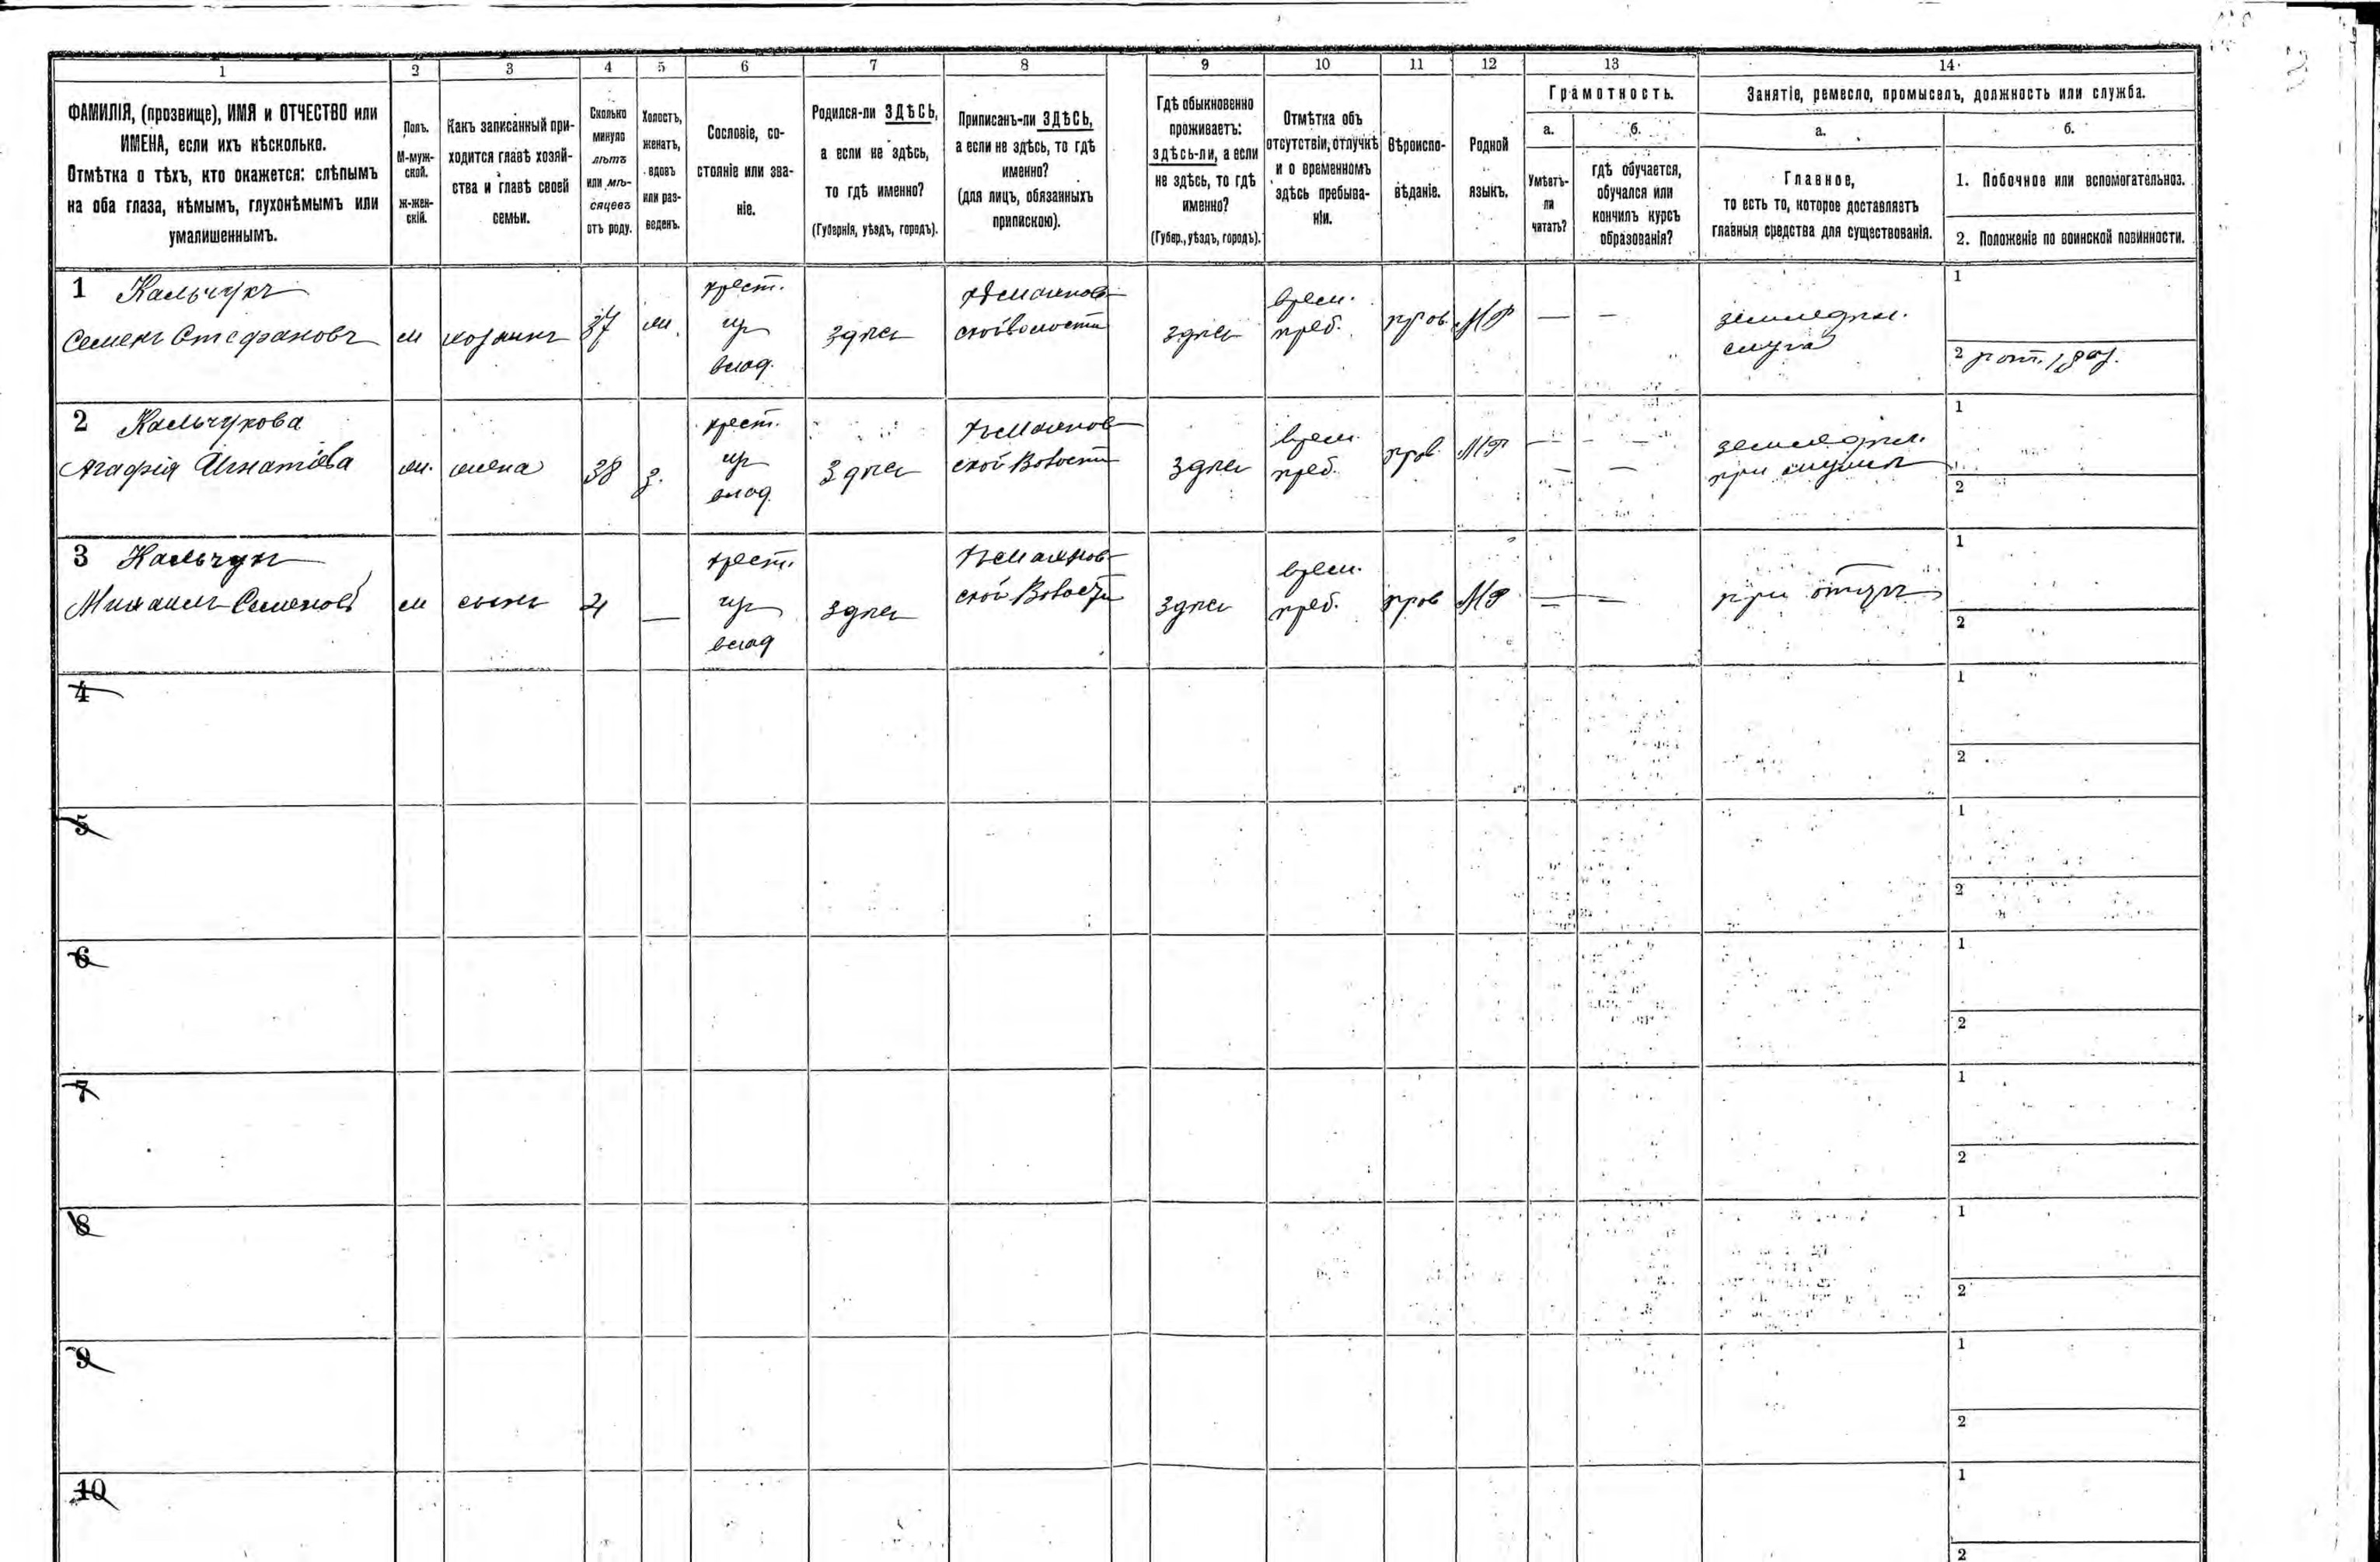 1 2 3 4 5 6 7 8 9 10 11 12 13 14
ФАМИЛІЯ, (прозвище), ИМЯ и ОТЧЕСТВО или
ИМЕНА, если ихъ нѣсколько.
Отмѣтка о тѣхъ, кто окажется: слѣпымъ
на оба глаза, нѣмымъ, глухонѣмымъ или
умалишеннымъ.
Полъ.
М-муж-
ской.
ж-жен-
скій.
Какъ записанный при-
ходится главѣ хозяй-
ства и главѣ своей
семьи.
Сколько
минуло
лѣтъ
или мѣ-
сяцевъ
отъ роду.
Холостъ,
женатъ,
вдовъ
или раз-
веденъ.
Сословіе, со-
стояніе или зва-
ніе.
Родился-ли ЗДѢСЬ,
а если не здѣсь,
то гдѣ именно?
(Губернія, уѣздъ, городъ).
Приписанъ-ли ЗДѢСЬ,
а если не здѣсь, то гдѣ
именно?
(для лицъ, обязанныхъ
припискою).
Гдѣ обыкновенно
проживаетъ:
здѣсь-ли, а если
не здѣсь, то гдѣ
именно?
(Губер., уѣздъ, городъ).
Отмѣтка объ
отсутствіи, отлучкѣ
и о временномъ
здѣсь пребыва-
ніи.
Вѣроиспо-
вѣданіе.
Родной
языкъ.
Грамотность.
а.
Умѣетъ-
ли
читать?
б.
гдѣ обучается,
обучался или
кончилъ курсъ
образованія?
Занятіе, ремесло, промыселъ, должность или служба.
а.
Главное,
то есть то, которое доставляетъ
главныя средства для существованія.
б.
1. Побочное или вспомогательное.
2. Положеніе по воинской повинности.
1 Кальчукъ
Семенъ Стефановъ
м
хозяинъ
37
крест.
влад.
здѣсь
ской волости
здѣсь
врем.
преб.
прав.
МР
— —
земледѣл.
слуга
1
2
2 Кальчукова
Агафія Игнатіева
жена
38
з.
крест.
влад.
здѣсь
ской Волости
здѣсь
врем.
преб.
прав.
МР
— —
земледѣл.
при мужѣ
1
2
3 Кальчукъ
Михаилъ Семеновъ
м
сынъ
—
крест.
влад
здѣсь
ской Волости
здѣсь
врем.
преб.
прав
МР
— —
при отцѣ
1
2
4
1
2
5
1
2
6
1
2
7
1
2
8
1
2
9
1
2
10
1
2